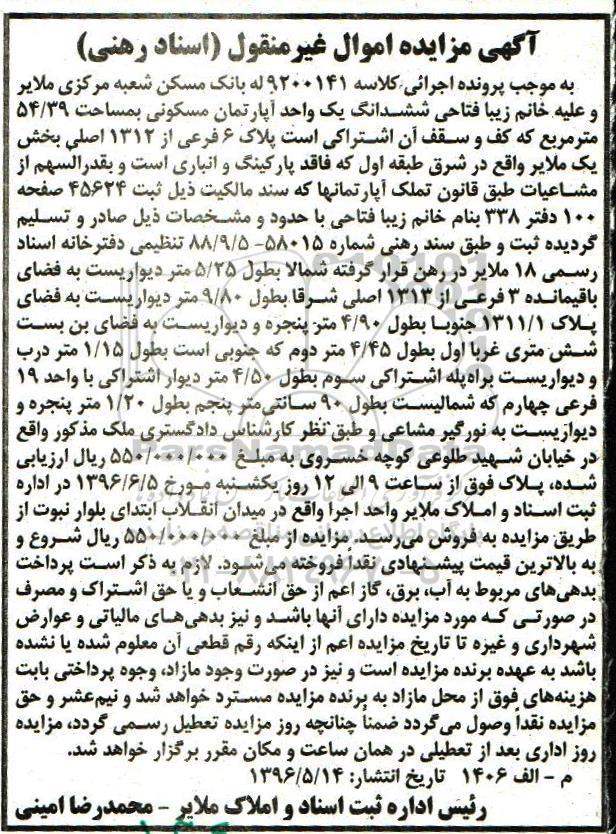 آگهی مزایده اموال غیرمنقول (اسناد رهنی)
به موجب پرونده اجرائی کلاسه ۹۲۰۰۱۴۱ له بانک مسکن شعبه مرکزی ملایر
و علیه خانم زیبا فتاحی ششدانگ یک واحد آپارتمان مسکونی بمساحت ۵۴/۳۹
مترمربع که کف و سقف آن اشتراکی است پلاک ۶ فرعی از ۱۳۱۲ اصلی بخش
یک ملایر واقع در شرق طبقه اول که فاقد پارکینگ و انباری است و بقدرالسهم از
مشاعیات طبق قانون تملک آپارتمانها که سند مالکیت ذیل ثبت ۴۵۶۲۴ صفحه
۱۰۰ دفتر ۳۳۸ بنام خانم زیبا فتاحی با حدود و مشخصات ذیل صادر و تسلیم
گردیده ثبت و طبق سند رهنی شماره ۵۸۰۱۵- ۸۸/۹/۵ تنظیمی دفترخانه اسناد
رسمی ۱۸ ملایر در رهن قرار گرفته شمالا بطول ۵/۲۵ متر دیواریست به فضای
باقیمانده ۳ فرعی از ۱۳۱۳ اصلی شرقا بطول ۹/۸۰ متر دیواریست به فضای
پلاک ۱۳۱۱/۱ جنوبا بطول ۴/۹۰ متر پنجره و دیواریست به فضای بن بست
شش متری غربا اول بطول ۴/۴۵ متر دوم که جنوبی است بطول ۱/۱۵ متر درب
و دیواریست براه‌پله اشتراکی سوم بطول ۴/۵۰ متر دیوار اشتراکی با واحد ۱۹
فرعی چهارم که شمالیست بطول ۹۰ سانتی‌متر پنجم بطول ۱/۲۰ متر پنجره و
دیواریست به نورگیر مشاعی و طبق نظر کارشناس دادگستری ملک مذکور واقع
در خیابان شهید طلوعی کوچه خسروی به مبلغ ۵۵۰/۰۰۰/۰۰۰ ریال ارزیابی
شده، پلاک فوق از ساعت ۹ الی ۱۲ روز یکشنبه مورخ ۱۳۹۶/۶/۵ در اداره
ثبت اسناد و املاک ملایر واحد اجرا واقع در میدان انقلاب ابتدای بلوار نبوت از
طریق مزایده به فروش می‌رسد. مزایده از مبلغ ۵۵۰/۰۰۰/۰۰۰ ریال شروع و
به بالاترین قیمت پیشنهادی نقداً فروخته می‌شود. لازم به ذکر است پرداخت
بدهی‌های مربوط به آب، برق، گاز اعم از حق انشعاب و یا حق اشتراک و مصرف
در صورتی که مورد مزایده دارای آنها باشد و نیز بدهی‌های مالیاتی و عوارض
شهرداری و غیره تا تاریخ مزایده اعم از اینکه رقم قطعی آن معلوم شده یا نشده
باشد به عهده برنده مزایده است و نیز در صورت وجود مازاد، وجوه پرداختی بابت
هزینه‌های فوق از محل مازاد به برنده مزایده مسترد خواهد شد و نیم‌عشر و حق
مزایده نقداً وصول می‌گردد ضمناً چنانچه روز مزایده تعطیل رسمی گردد، مزایده
روز اداری بعد از تعطیلی در همان ساعت و مکان مقرر برگزار خواهد شد.
م - الف ۱۴۰۶ تاریخ انتشار: ۱۳۹۶/۵/۱۴
رئیس اداره ثبت اسناد و املاک ملایر - محمدرضا امینی